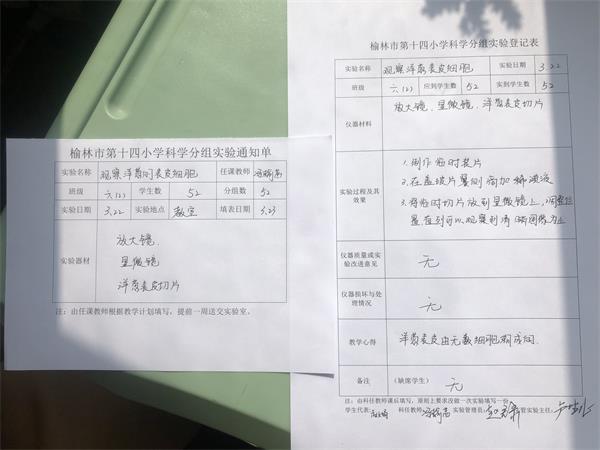 榆林市第十四小学科学分组实验通知单
实验名称 观察洋葱表皮细胞 任课教师
班级 六(2) 学生数 52 分组数 52
实验日期 3.22 实验地点 教室 填表日期 3.23
实验器材
放大镜
显微镜
洋葱表皮切片
注:由任课教师根据教学计划填写,提前一周送交实验室。
榆林市第十四小学科学分组实验登记表
实验名称 观察洋葱表皮细胞 实验日期 3.22
班级 六(2) 应到学生数 52 实到学生数 52
仪器材料 放大镜、显微镜、洋葱表皮切片
实验过程及其效果
1.制作临时装片
2.在盖玻片翼侧滴加稀碘液
3.将临时切片放到显微镜上,调整
直到可以观察到清晰图像为止
仪器质量或实验改进意见 无
仪器损坏与处理情况 无
教学心得 洋葱表皮由无数细胞构成的.
备注 (缺席学生) 无
注:由科任教师课后填写,原则上要求没做一次实验填写一份
学生代表: 科任教师: 实验管理员: 管实验主任: